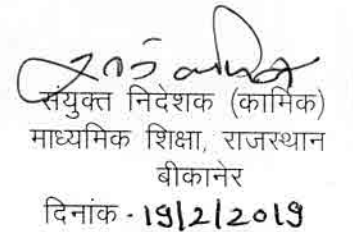 संयुक्त निदेशक (कार्मिक)
माध्यमिक शिक्षा, राजस्थान
बीकानेर
दिनांक - 19/2/2019